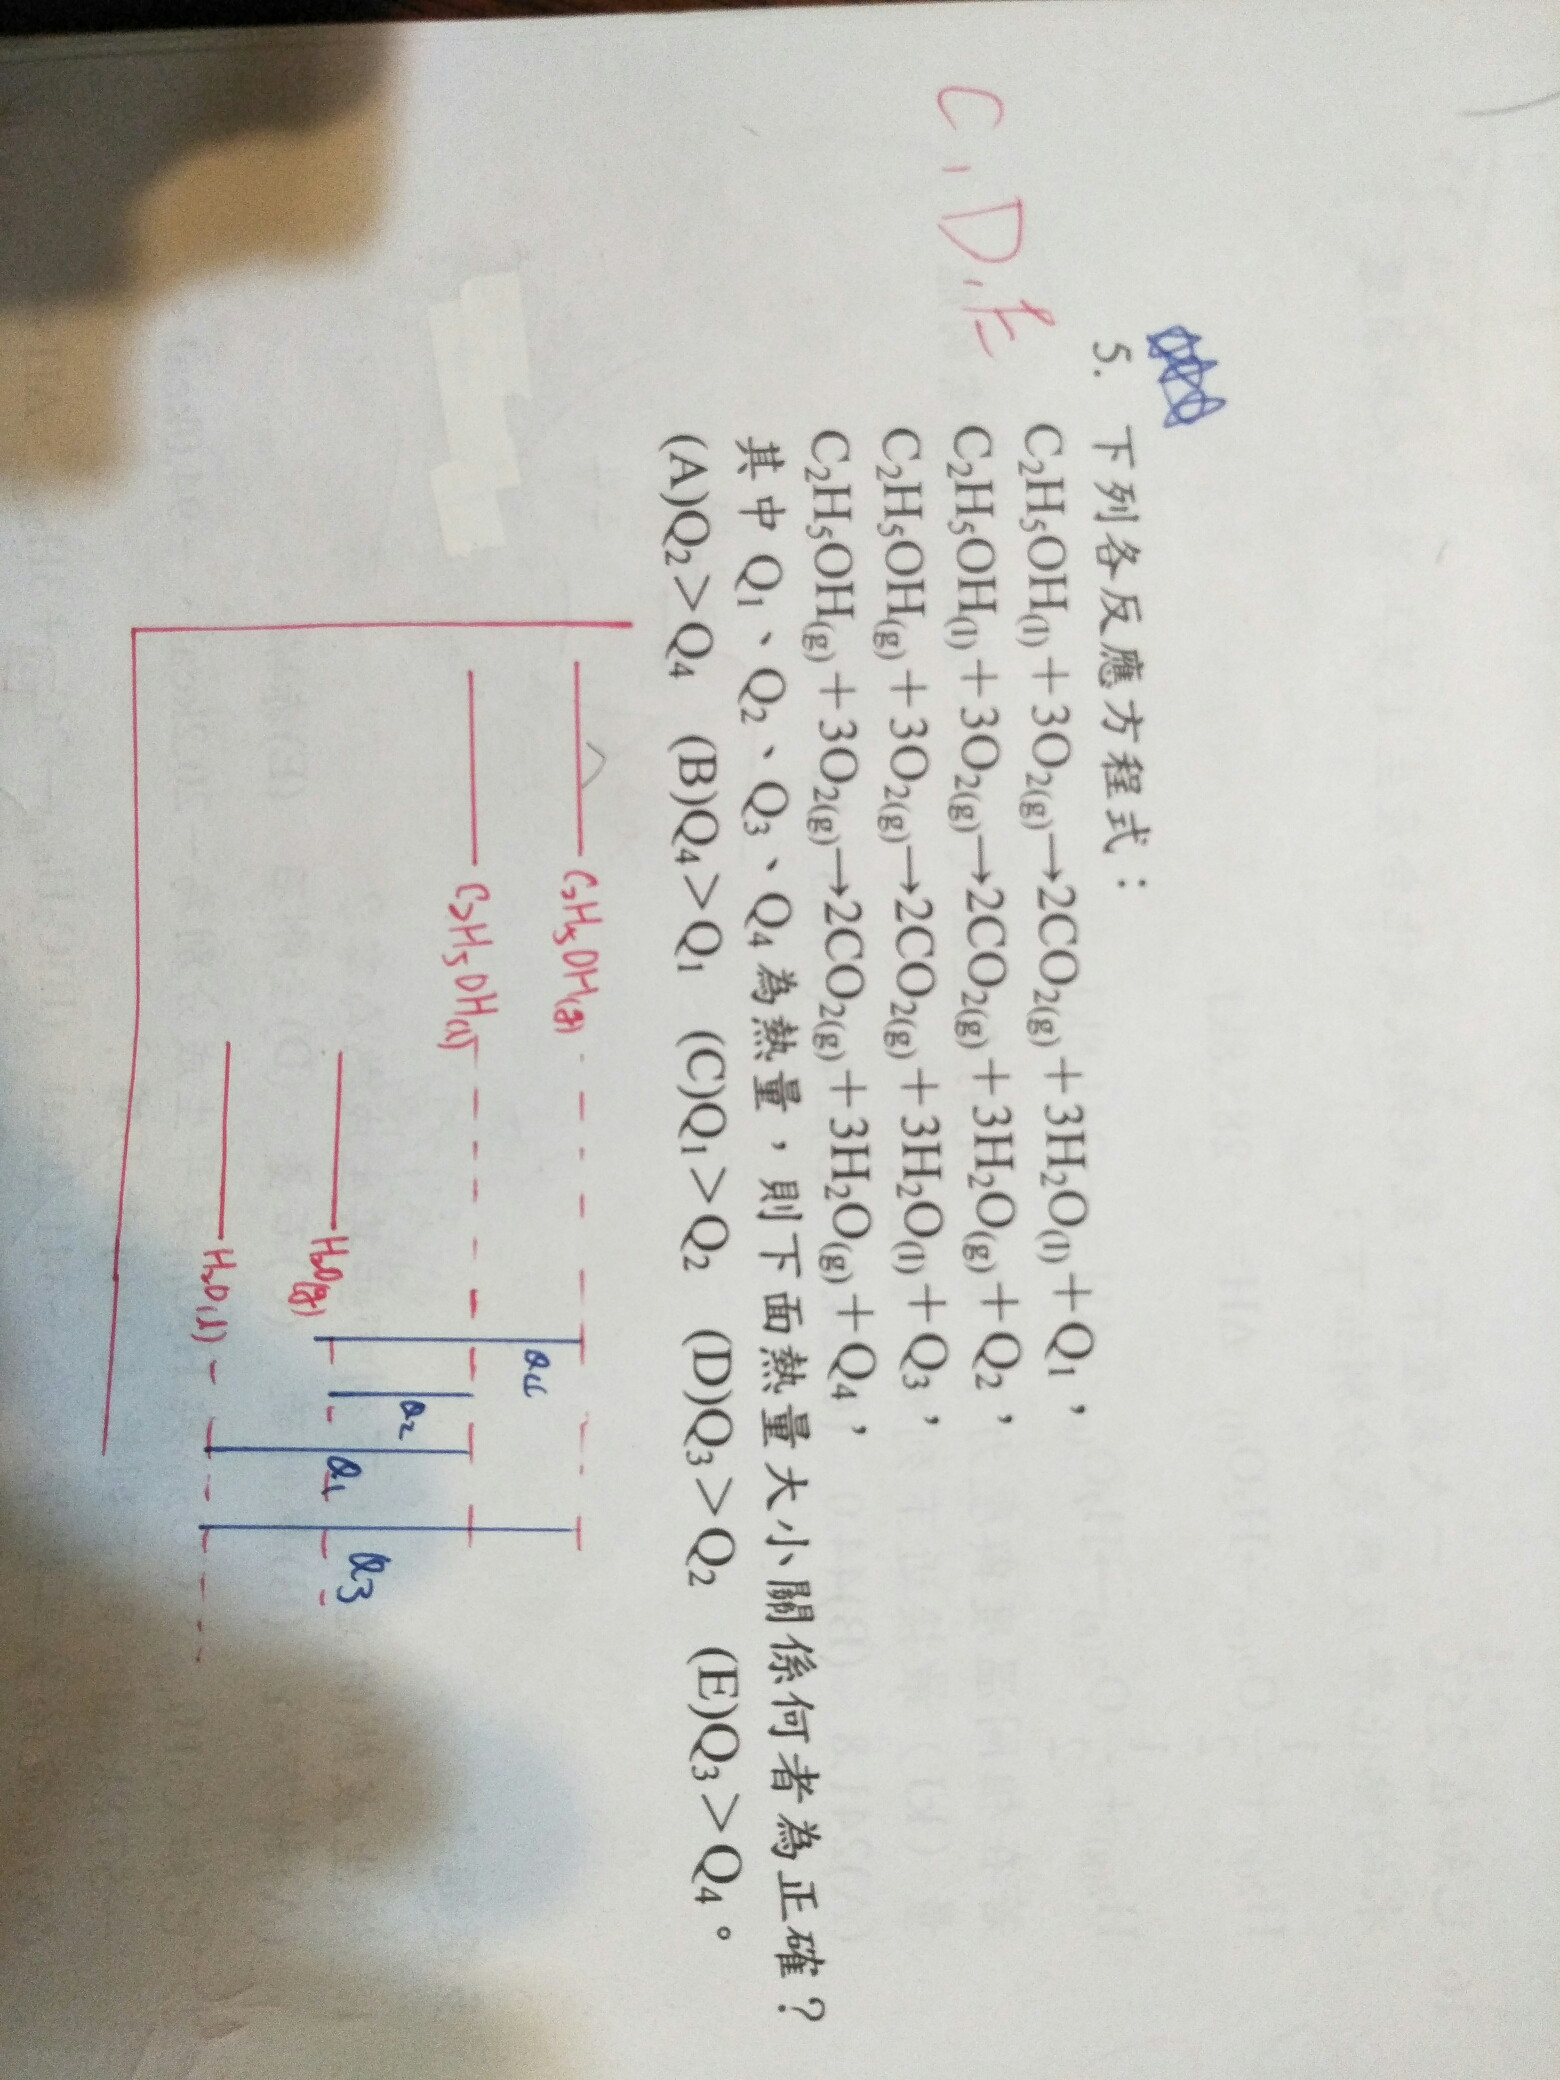 C, D, E
5. 下列各反應方程式：
C₂H₅OH₍l₎＋3O₂₍g₎→2CO₂₍g₎＋3H₂O₍l₎＋Q₁，
C₂H₅OH₍l₎＋3O₂₍g₎→2CO₂₍g₎＋3H₂O₍g₎＋Q₂，
C₂H₅OH₍g₎＋3O₂₍g₎→2CO₂₍g₎＋3H₂O₍l₎＋Q₃，
C₂H₅OH₍g₎＋3O₂₍g₎→2CO₂₍g₎＋3H₂O₍g₎＋Q₄，
其中Q₁、Q₂、Q₃、Q₄為熱量，則下面熱量大小關係何者為正確？
(A)Q₂＞Q₄ (B)Q₄＞Q₁ (C)Q₁＞Q₂ (D)Q₃＞Q₂ (E)Q₃＞Q₄。
C₂H₅OH(g)
Q₄
C₂H₅OH(l)
Q₂
H₂O(g)
Q₁
Q₃
H₂O(l)